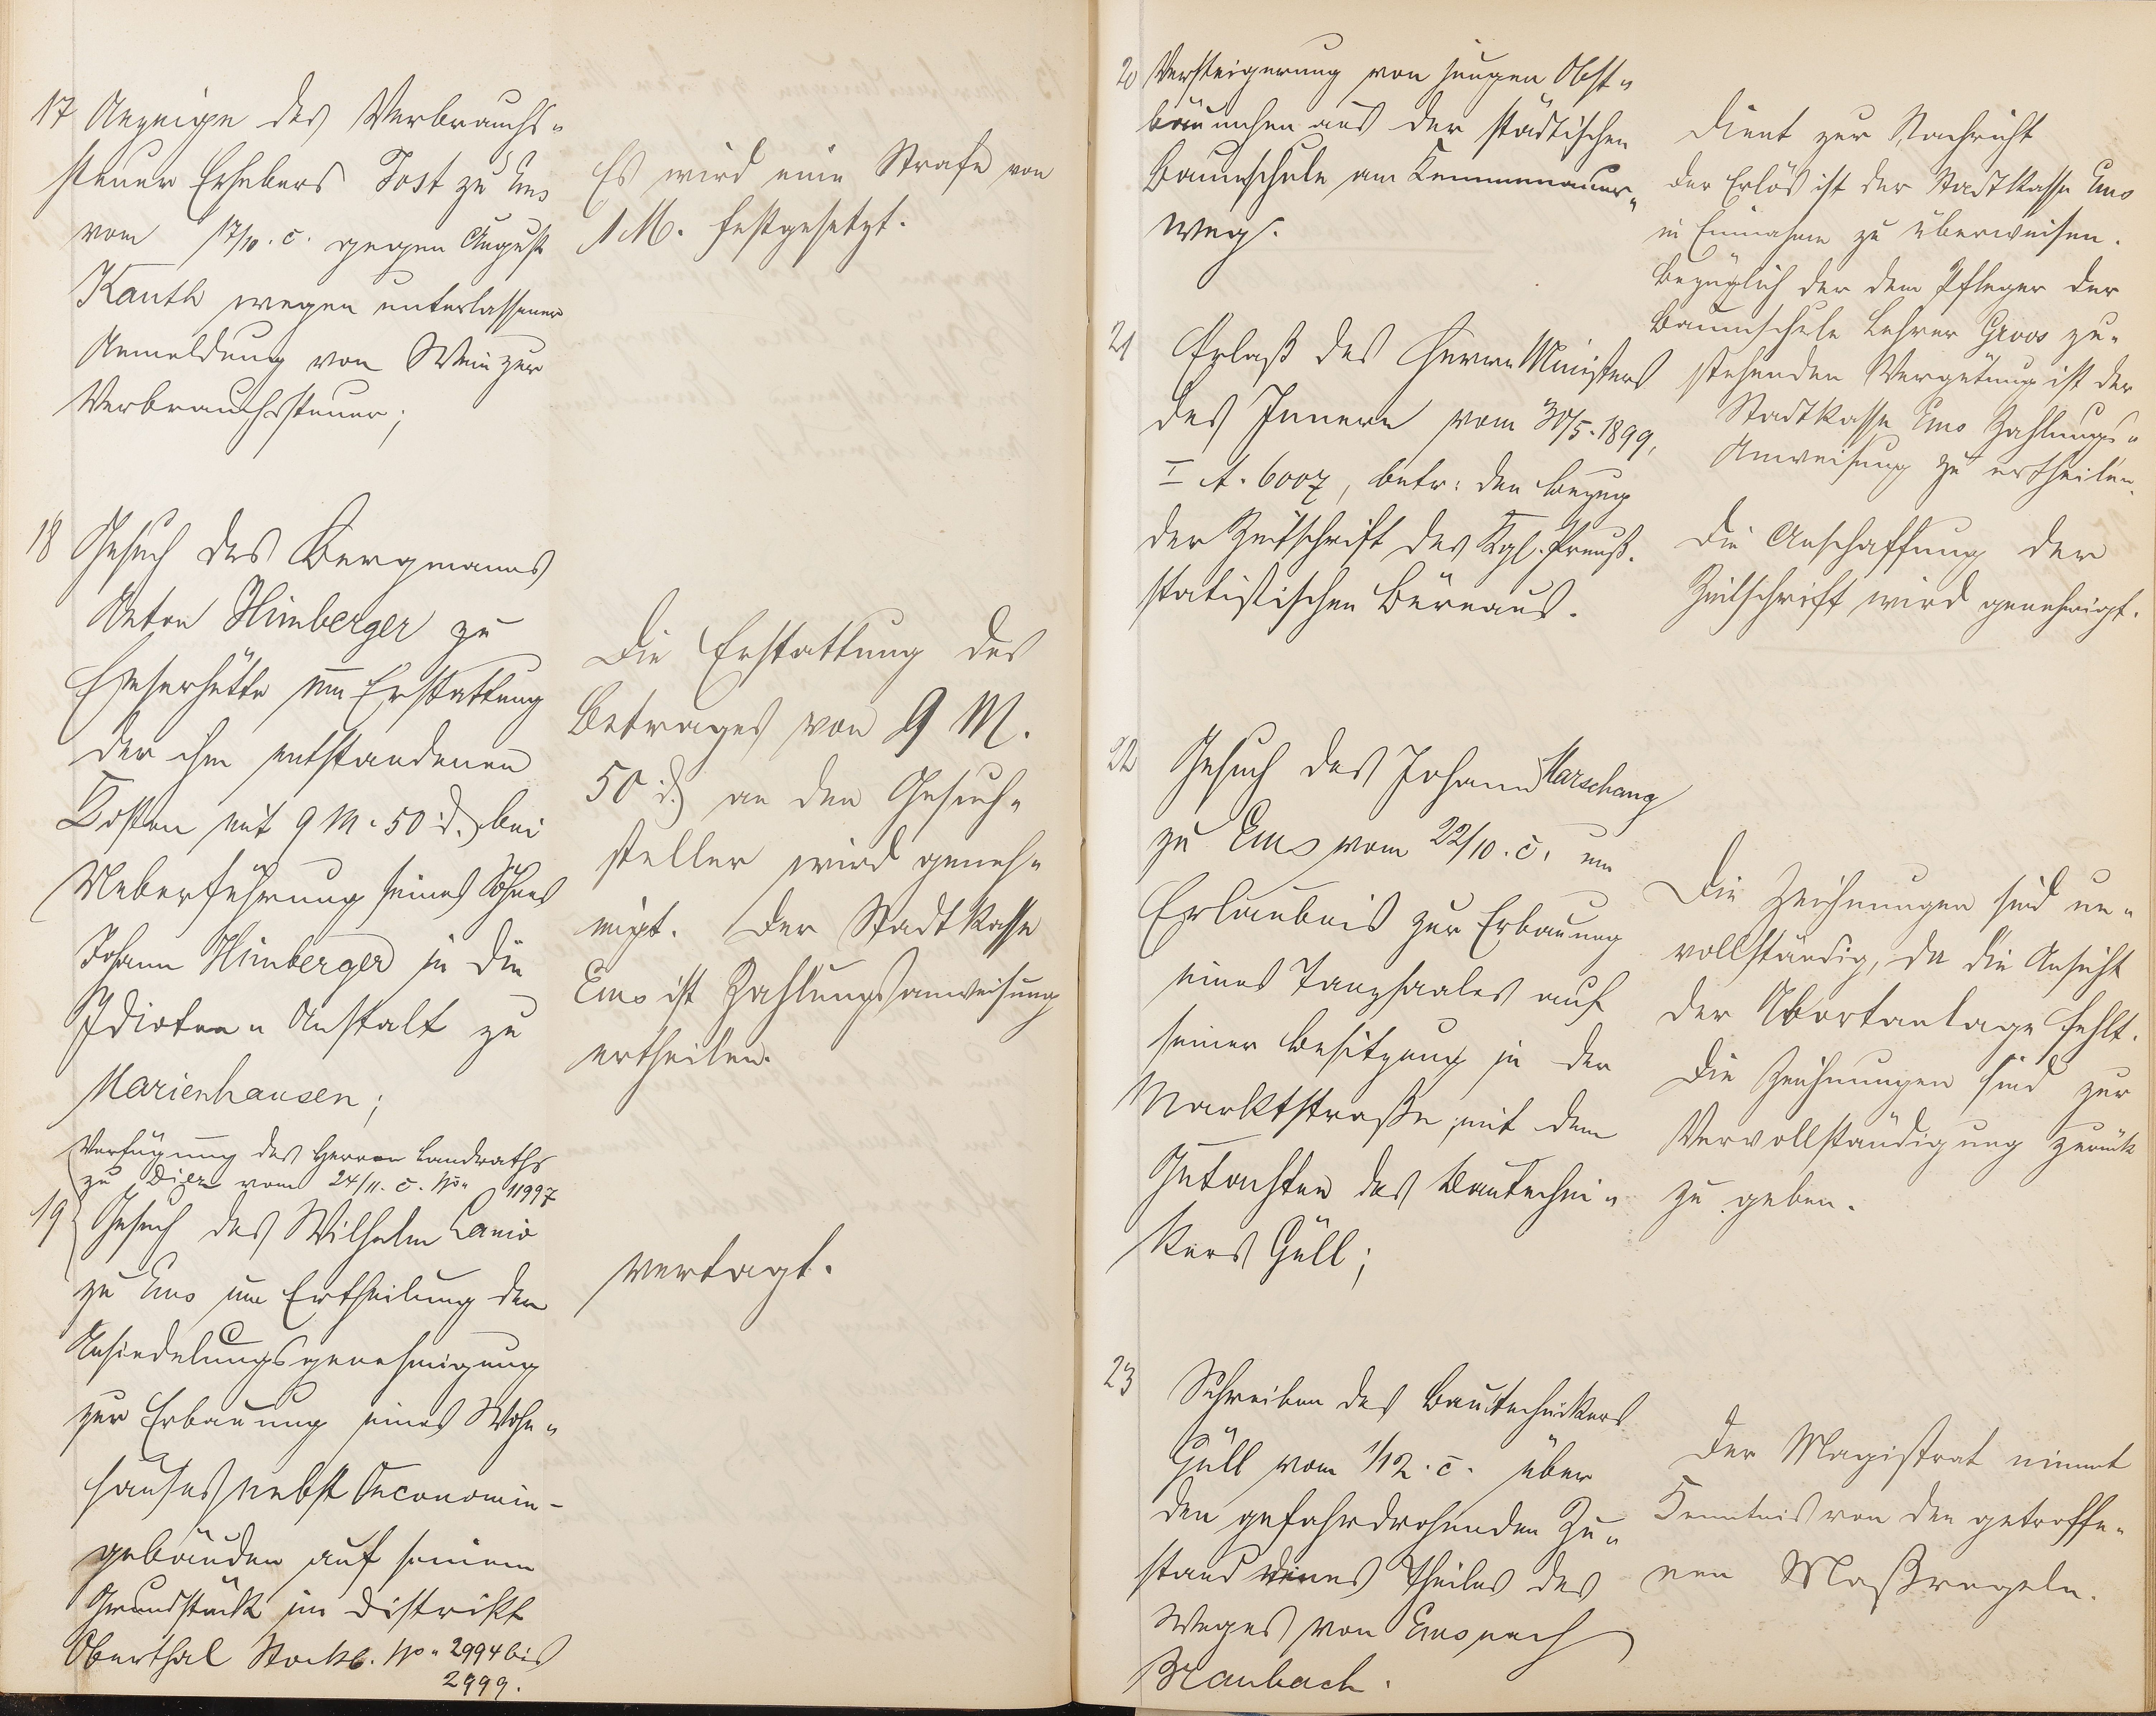 17 Anzeige des Verbrauchs-
steuer Erhebers Jost zu Ems
vom 17/10. c. gegen August
Kauth wegen unterlassener
Anmeldung von Wein zur
Verbrauchssteuer;
Es wird eine Strafe von
1 M. festgesetzt.
18 Gesuch des Bergmanns
Anton Himberger zu
Emserhütte um Erstattung
der ihm entstandenen
Kosten mit 9 M. 50 d. bei
Ueberführung seines Sohnes
Johann Himberger in die
Idioten-Anstalt zu
Marienhausen;
Die Erstattung des
Betrages von 9 M.
50 d. an den Gesuch-
steller wird geneh-
migt. Der Stadtkasse
Ems ist Zahlungsanweisung
ertheilen.
Verfügung des Herrn Landraths
zu Diez vom 24/11. c. No. 11997
19 Gesuch des Wilhelm Lanio
zu Ems um Ertheilung der
Ansiedelungsgenehmigung
zur Erbauung eines Wohn-
hauses nebst Oeconomie-
gebäuden auf seinem
Grundstück im Distrikt
Oberthal Stockb. No. 2994 bis
2999.
vertagt.
20 Versteigerung von jungen Obst-
bäumchen aus der städtischen
Baumschule am Kemmenauer-
weg.
Dient zur Nachricht
der Erlös ist der Stadtkasse Ems
in Einnahme zu überweisen.
Bezüglich der dem Pfleger der
Baumschule Lehrer Groos zu-
stehenden Vergütung ist der
Stadtkasse Ems Zahlungs-
Anweisung zu ertheilen.
21 Erlaß des Herrn Ministers
des Innern vom 30/5. 1899,
I A. 6007, betr: den Bezug
der Zeitschrift des Kgl. Preuß.
statistischen Büreaus.
Die Anschaffung der
Zeitschrift wird genehmigt.
22 Gesuch des Johann Marschang
zu Ems vom 22/10. c. um
Erlaubnis zur Erbauung
eines Tanzsaales auf
seiner Besitzung in der
Marktstraße, mit dem
Gutachten des Bautechni-
kers Güll;
Die Zeichnungen sind un-
vollständig, da die Ansicht
der Abortanlage fehlt.
Die Zeichnungen sind zur
Vervollständigung zurück
zu geben.
23 Schreiben des Bautechnikers
Güll vom 1/12. c. über
den gefahrdrohenden Zu-
stand eines Theiles des
Weges von Ems nach
Braubach.
Der Magistrat nimmt
Kenntnis von den getroffe-
nen Maßregeln.